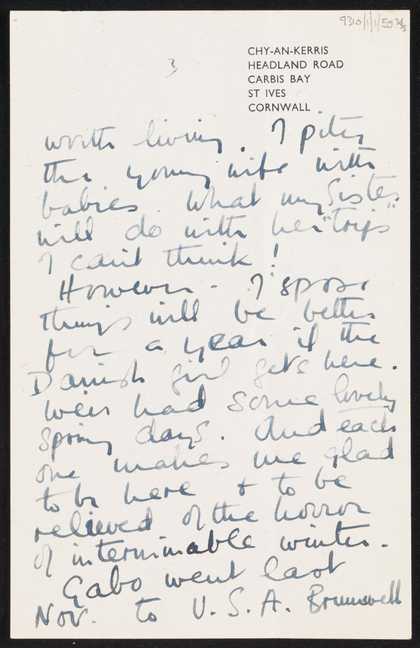 9310/1/1/50 3/5
3
CHY-AN-KERRIS
HEADLAND ROAD
CARBIS BAY
ST IVES
CORNWALL
worth living. I pity
the young wife with
babies. What my Sister
will do with her "trips"
I can't think!
However - I spose
things will be better
for a year if the
Danish girl gets here.
Weir had some lovely
spring days. And each
one makes me glad
to be here & to be
relieved of the horror
of interminable winter.
Gabo went last
Nov. to U.S.A. Brunswell